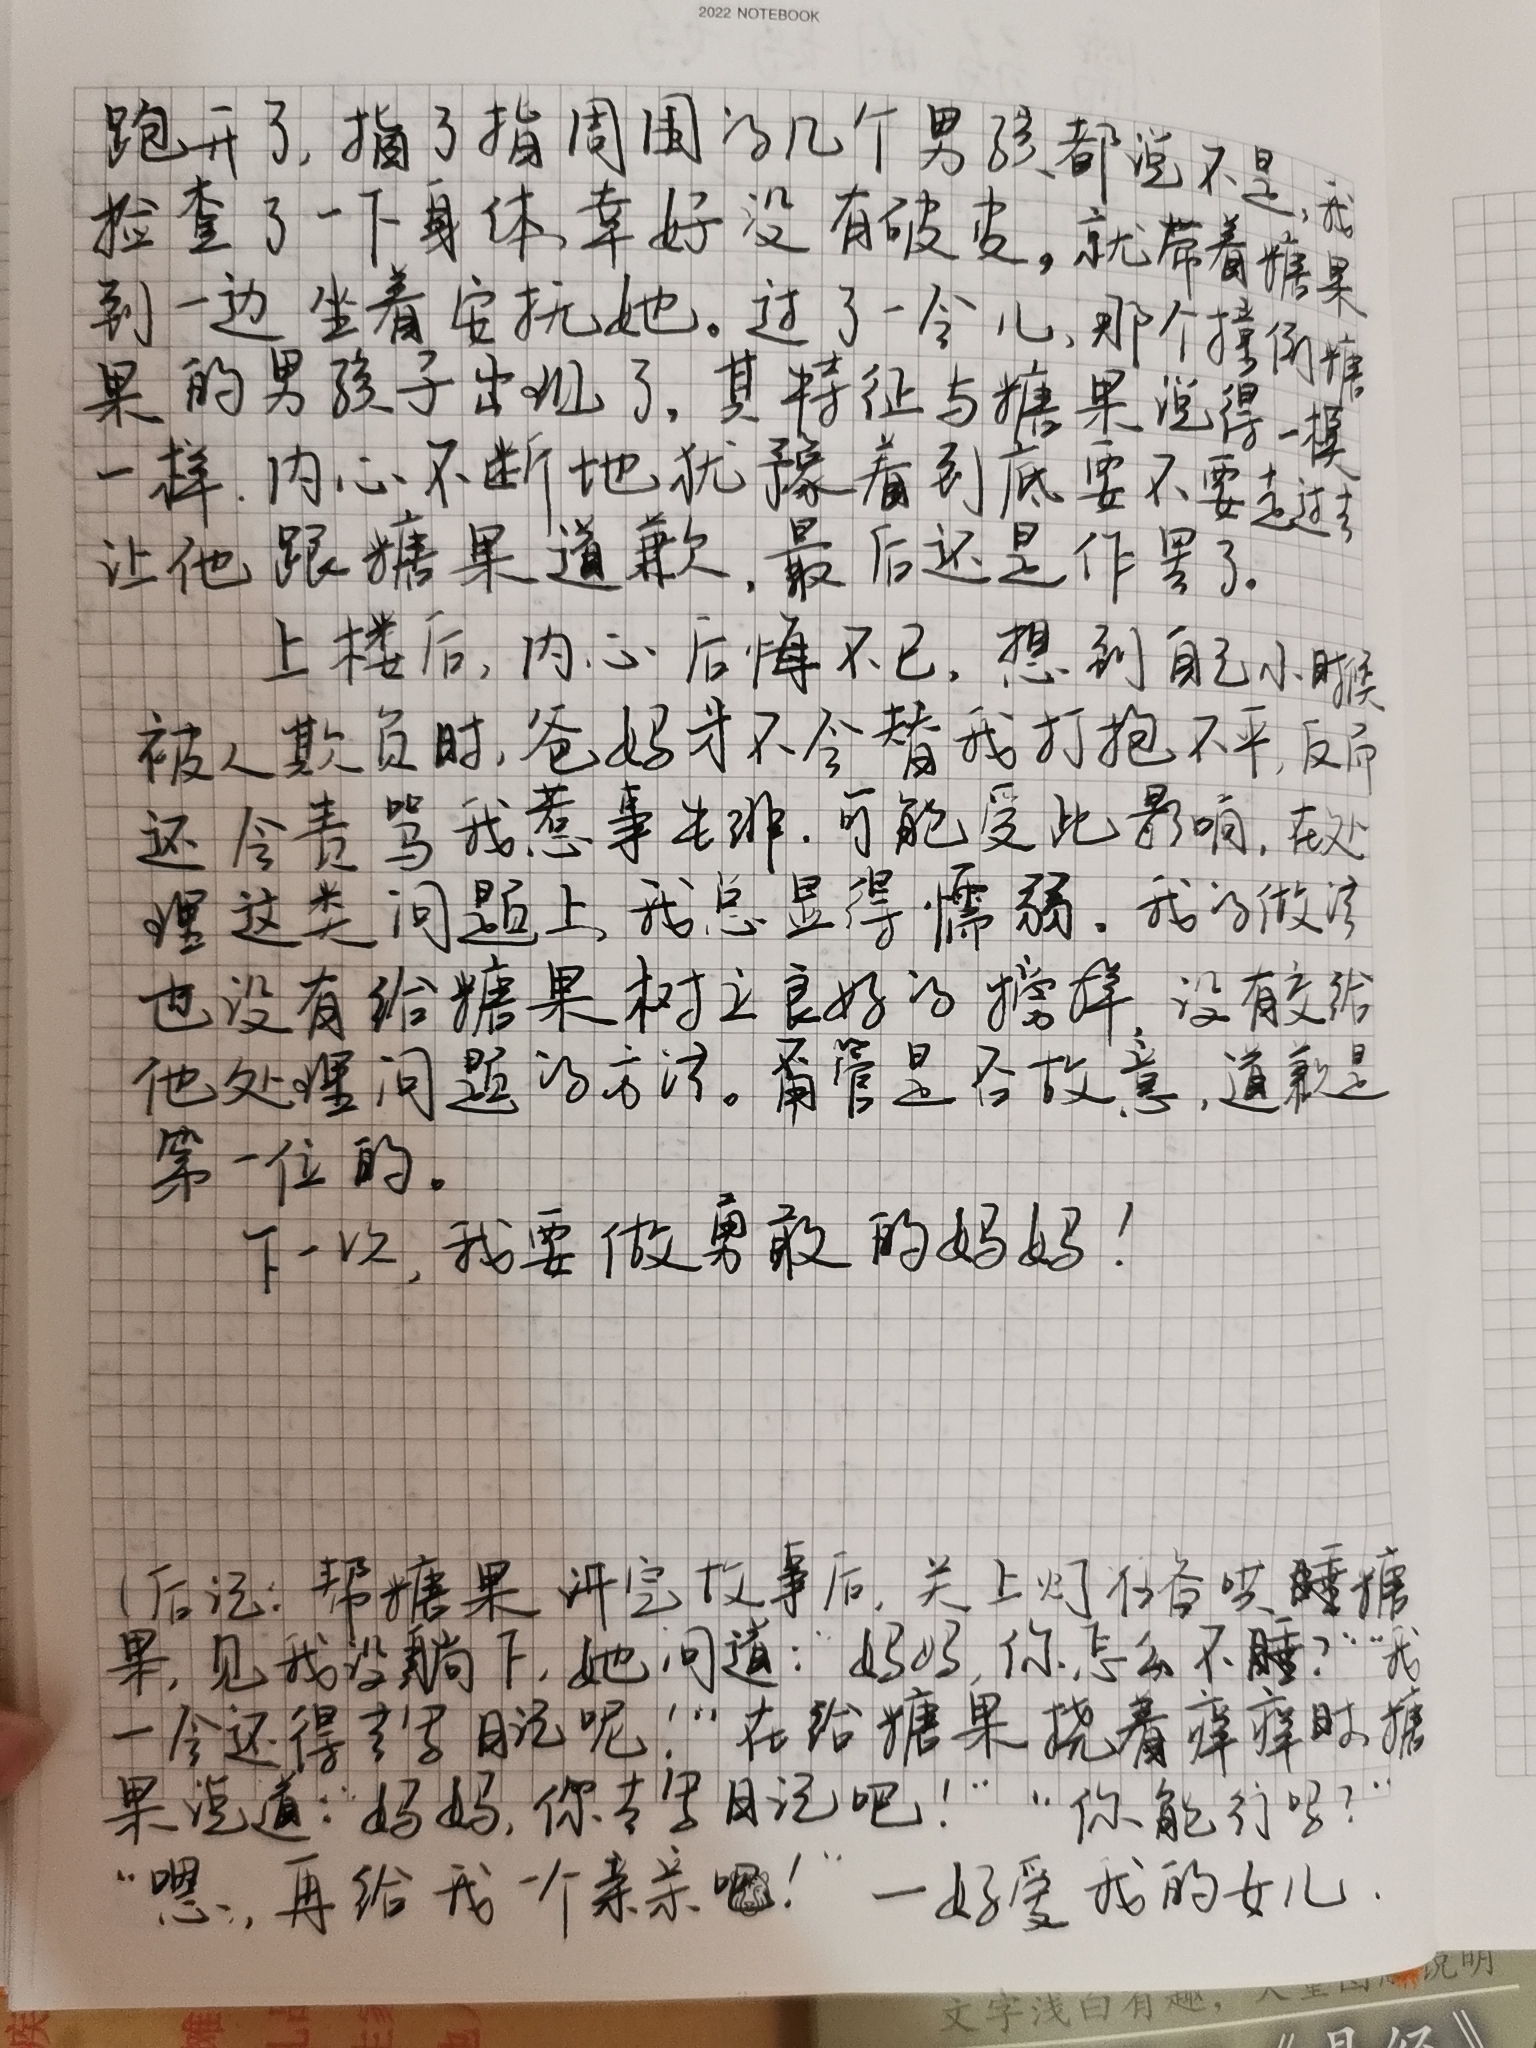 2022 NOTEBOOK
跑开了,指了指周围的几个男孩,都说不是,我
检查了一下身体,幸好没有破皮。就带着糖果
到一边坐着安抚她。过了一会儿,那个撞倒糖
果的男孩子出现了,其特征与糖果说得一模
一样.内心不断地犹豫着到底要不要走过去
让他跟糖果道歉,最后还是作罢了。
上楼后,内心后悔不已,想到自己小时候
被人欺负时,爸妈并不会替我打抱不平,反而
还会责骂我惹事生非.可能受此影响,在处
理这类问题上,我总显得懦弱。我的做法
也没有给糖果树立良好的榜样,没有交给
他处理问题的方法。甭管是否故意,道歉是
第一位的。
下一次,我要做勇敢的妈妈!
(后记:帮糖果讲完故事后,关上灯准备哄睡糖
果,见我没躺下,她问道:“妈妈,你怎么不睡?”“我
一会还得去写日记呢!”在给糖果挠着痒痒时,糖
果说道:“妈妈,你去写日记吧!”“你能行吗?”
“嗯,再给我一个亲亲吧!”一好爱我的女儿.
文字浅白有趣,
说明